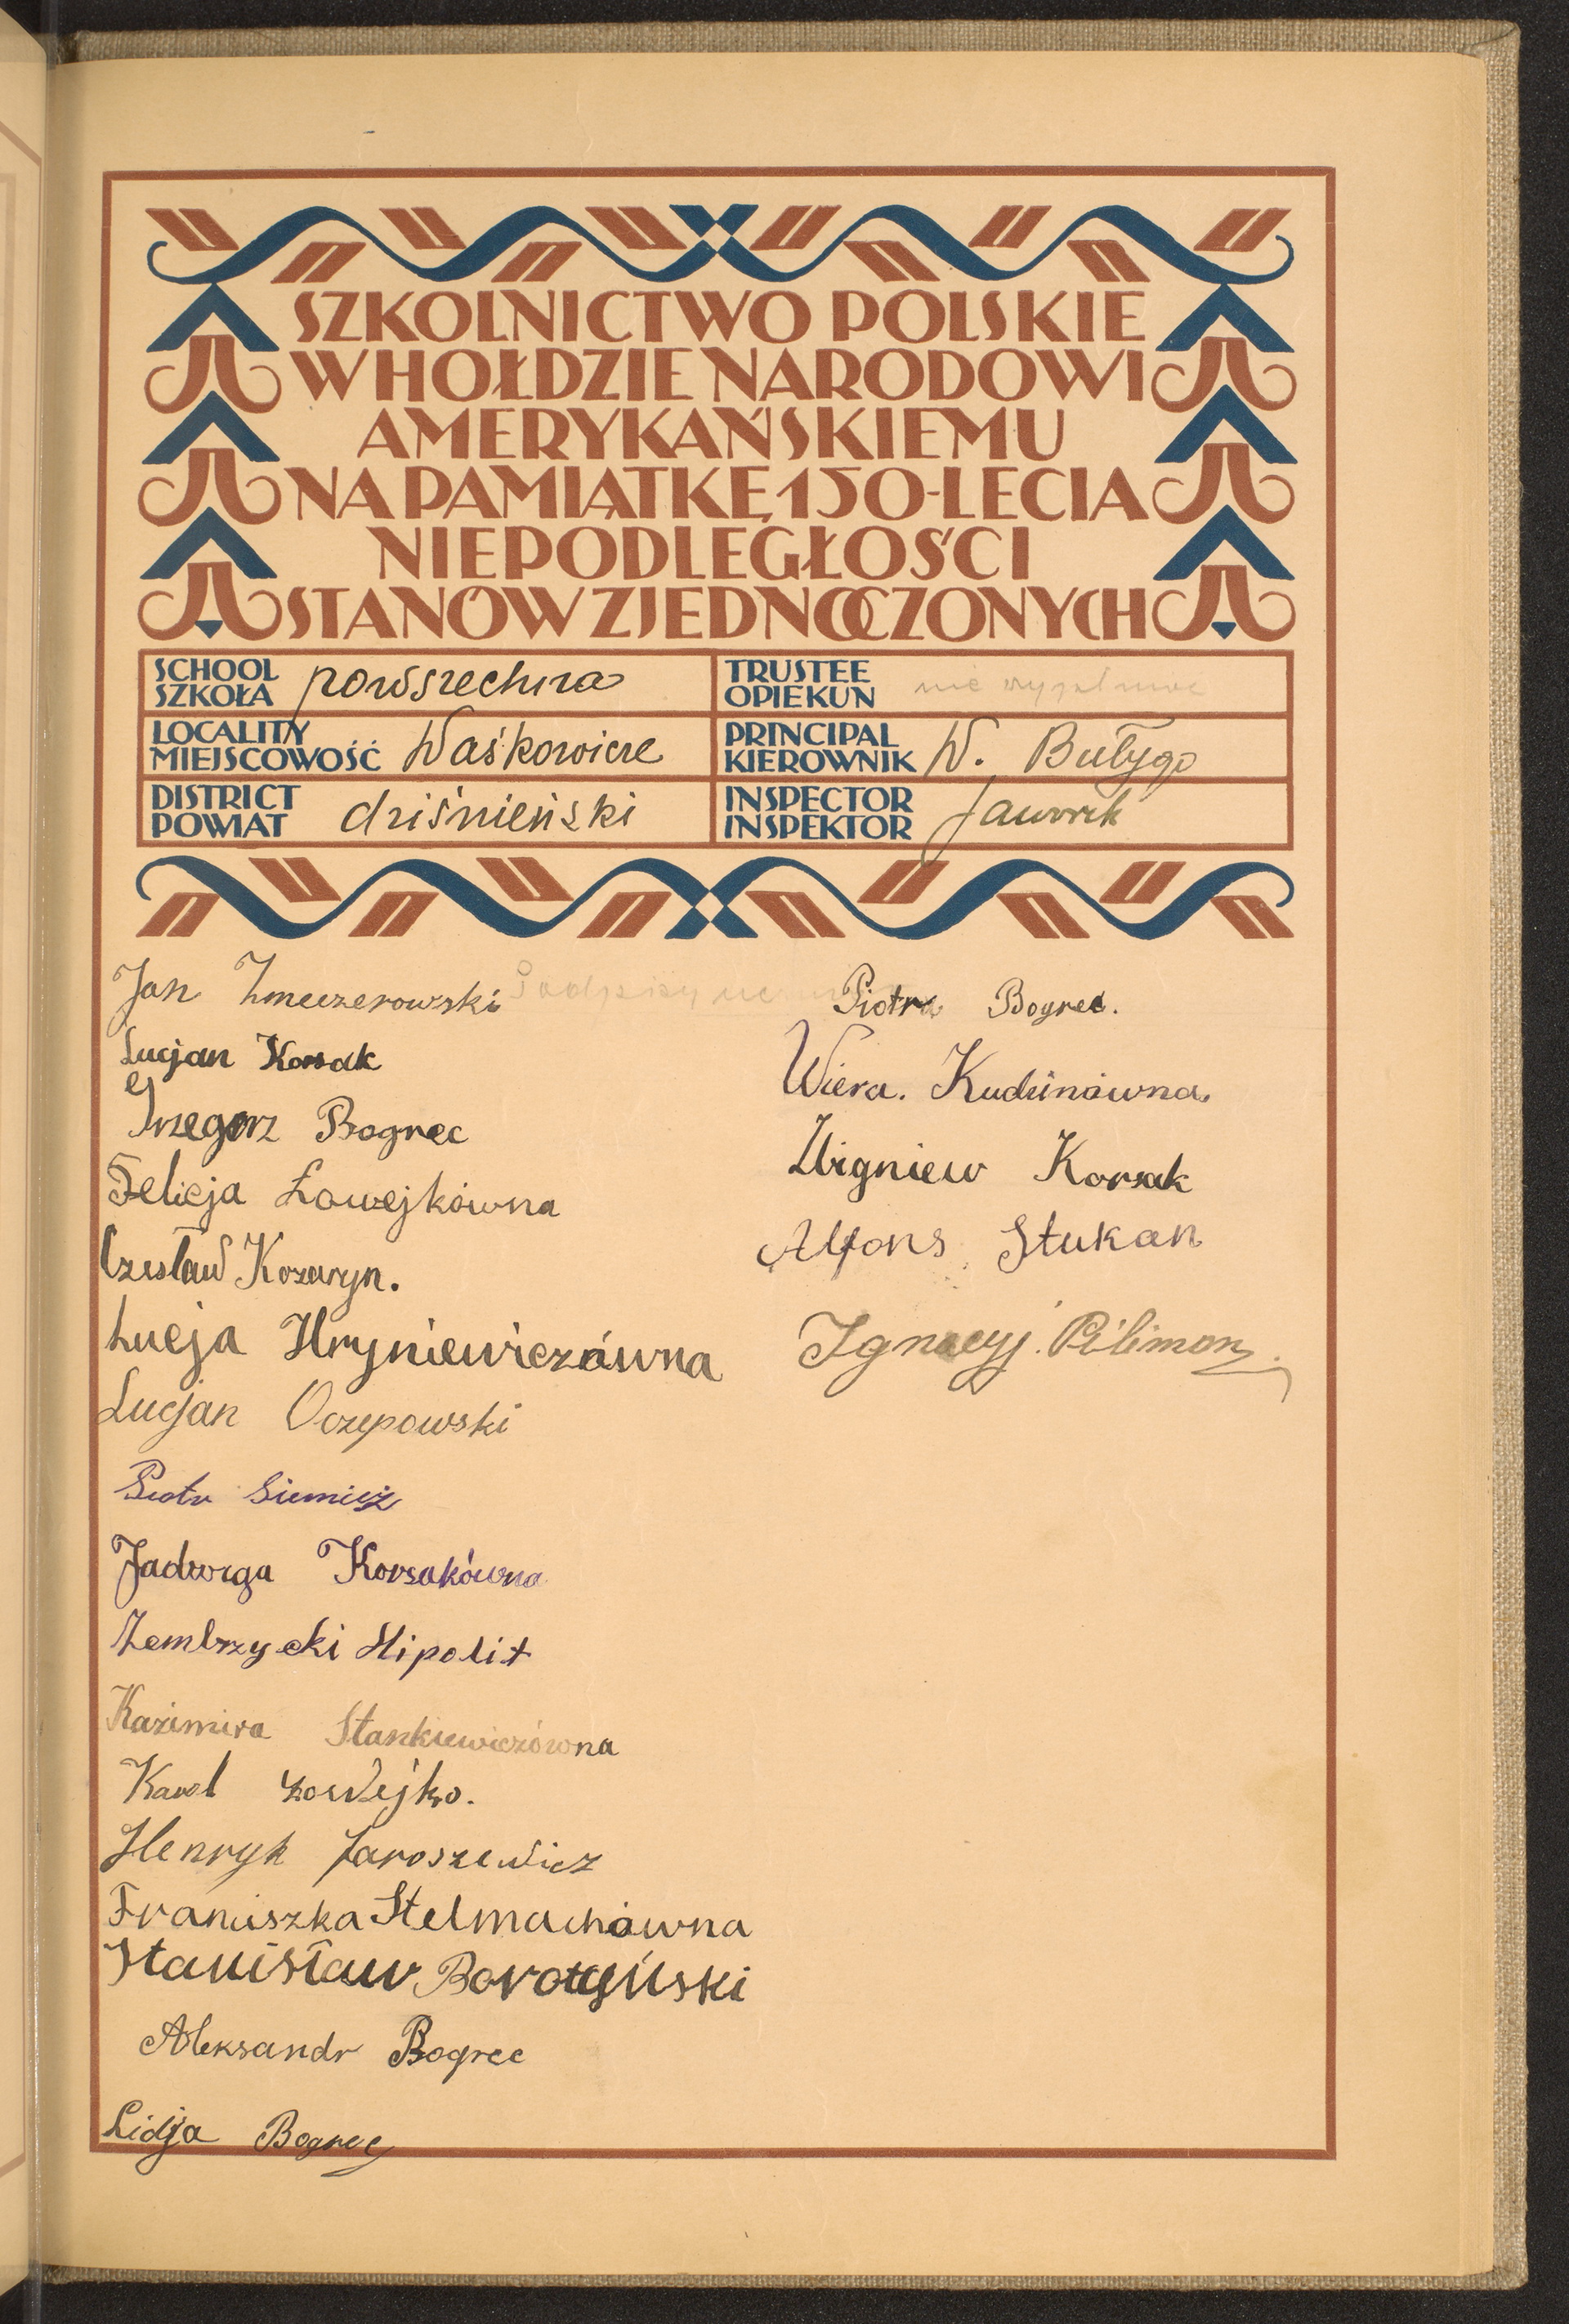 SZKOLNICTWO POLSKIE
W HOŁDZIE NARODOWI
AMERYKAŃSKIEMU
NA PAMIĄTKĘ 150-LECIA
NIEPODLEGŁOŚCI
STANÓW ZJEDNOCZONYCH
SCHOOL
SZKOŁA powszechna
TRUSTEE
OPIEKUN nie
LOCALITY
MIEJSCOWOŚĆ Waśkowicze
PRINCIPAL
KIEROWNIK W. Bułygo
DISTRICT
POWIAT dziśnieński
INSPECTOR
INSPEKTOR Jaworek
Jan Zmeczerowski
Podpisy
Lucjan Korsak
Grzegorz Bogrec
Felicja Łowejkówna
Czesław Kozaryn.
Lucja Hryniewiczówna
Lucjan Oczepowski
Piotr
Jadwiga Korsakówna
Zembrzycki Hipolit
Kazimira Stankiewiczówna
Karol Łowejko.
Henryk Jaroszewicz
Franciszka Stelmachówna
Stanisław Borotyński
Aleksandr Bogrec
Lidja Bogrec
Piotra Bogrec.
Wiera. Kudzinówna.
Zbigniew Korsak
Alfons Stukan
Ignacyj. Pilimon.